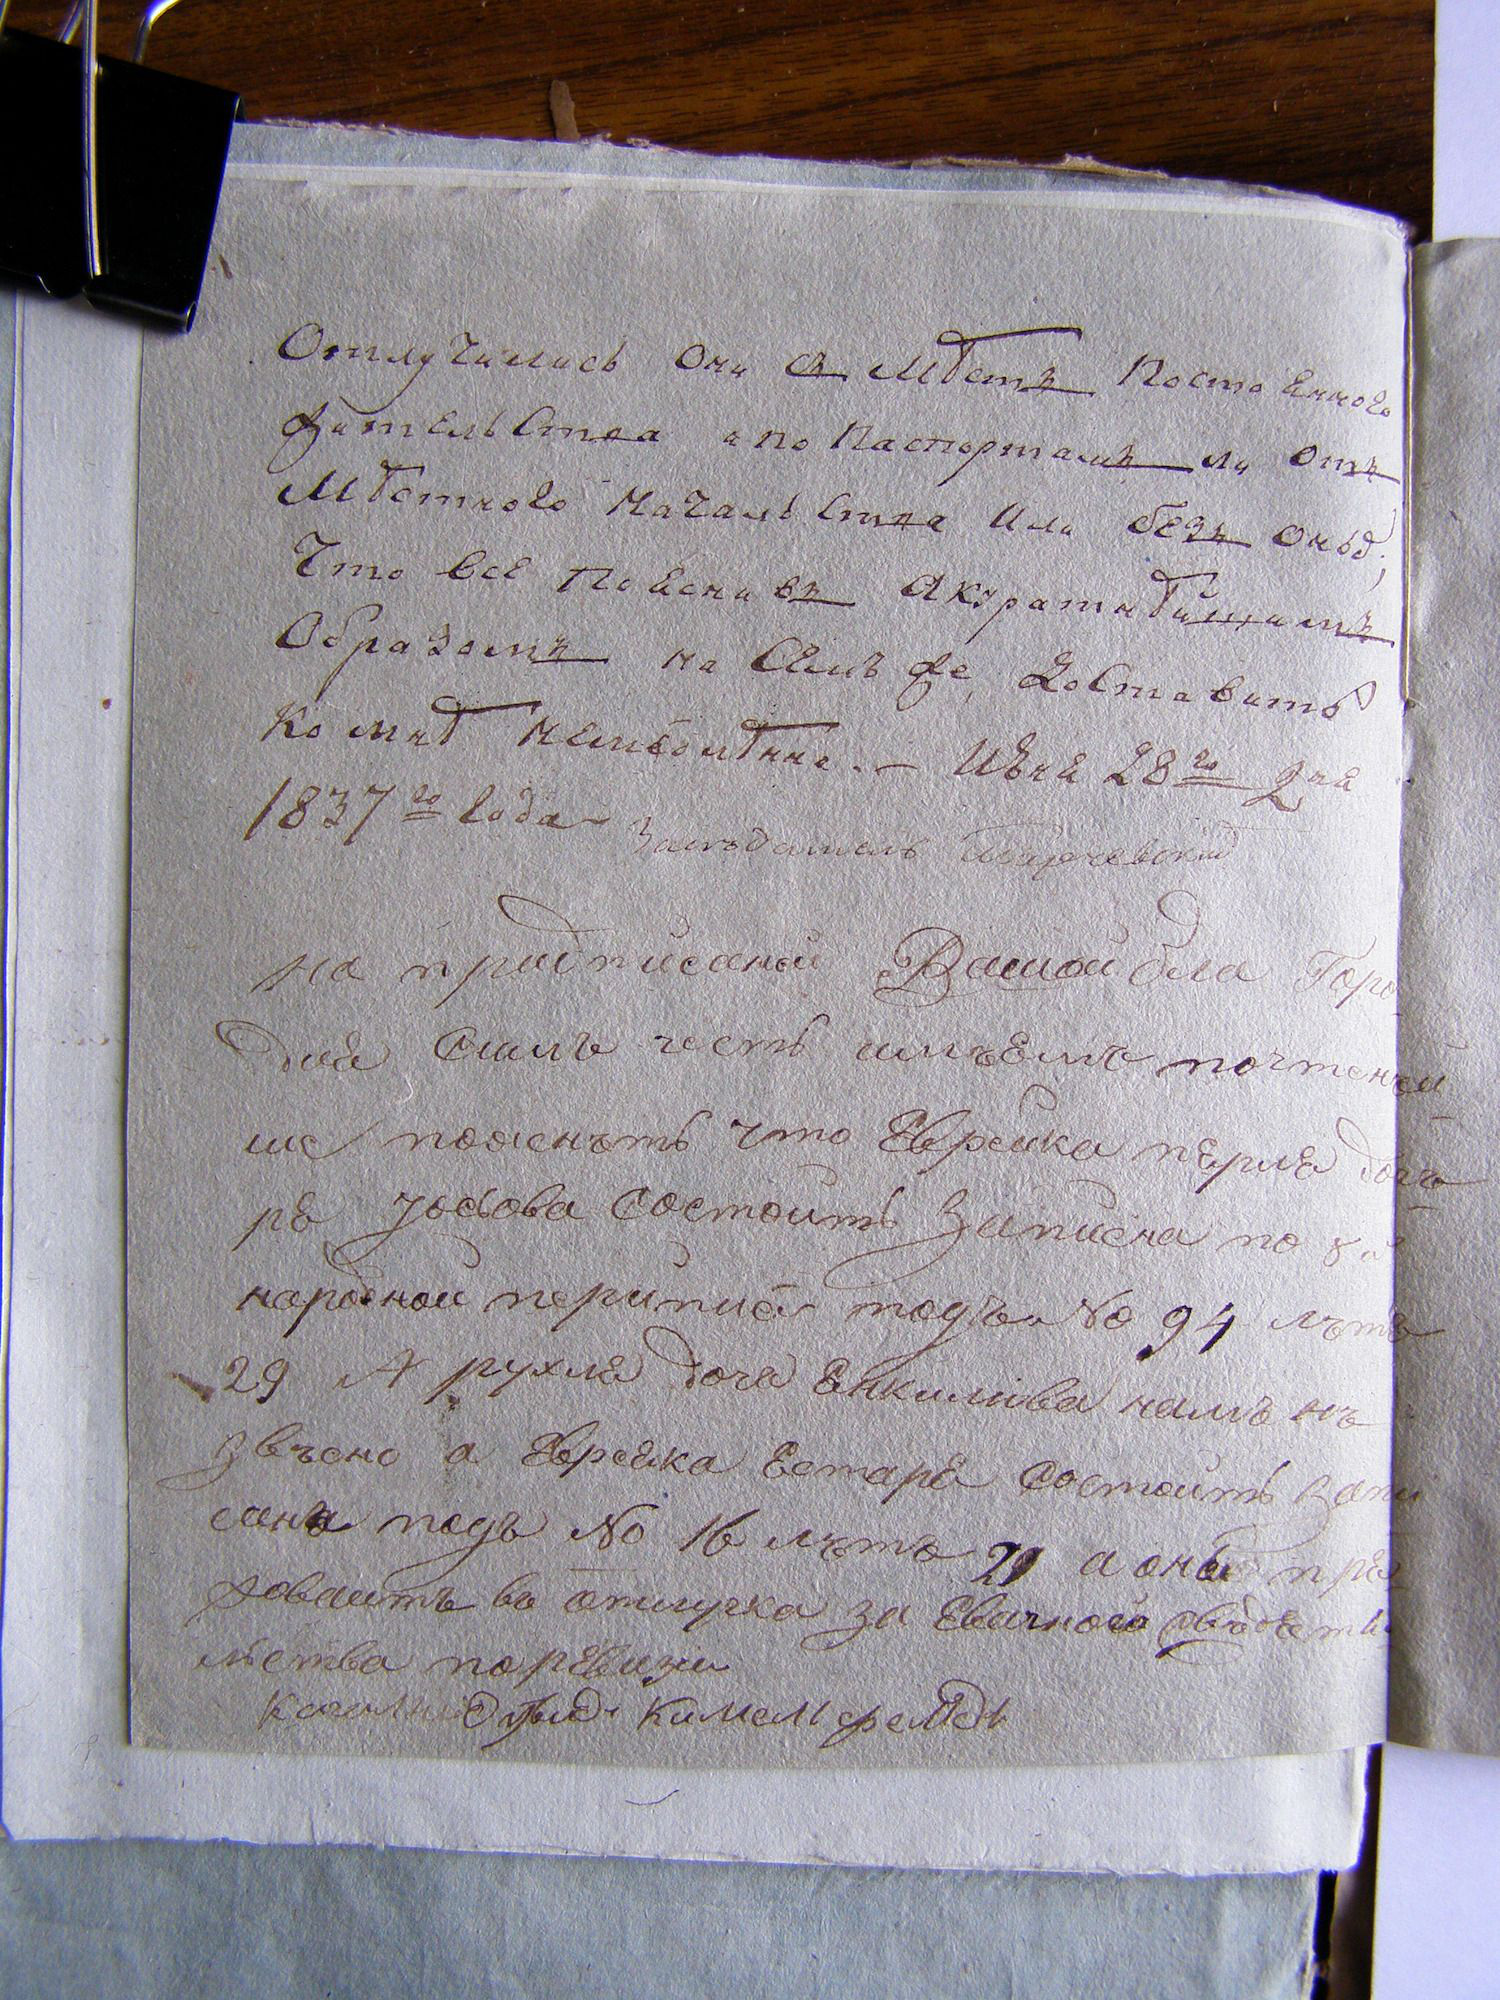 Отлучились Они съ Мѣстъ Постоеннаго
Жительства и по Паспортамъ ли Отъ
Мѣстного Начальства Или безъ оныхъ;
Что все Поеснивъ Акуратнѣйшимъ
Образомъ на Семъ же Доставить
Ко мнѣ немедлѣнна. — Июня 28го Дня
1837го Года
Заседатель
на предписаной Вашой для Горо
дой Симъ честь имъемъ почтеней
ше поженъть что Еврейка перле доче
ре Іосова Состоить Записна по
народной перипися подъ No 94 лътъ
29 А рухле доче Енкилюва намъ не
звъсно а Еврейка Естаре Состоить Запи
сана подъ No 16 лътъ 21 а оны пре
ховаить въ отлучка за Евачного свъдъте
льства поревизи